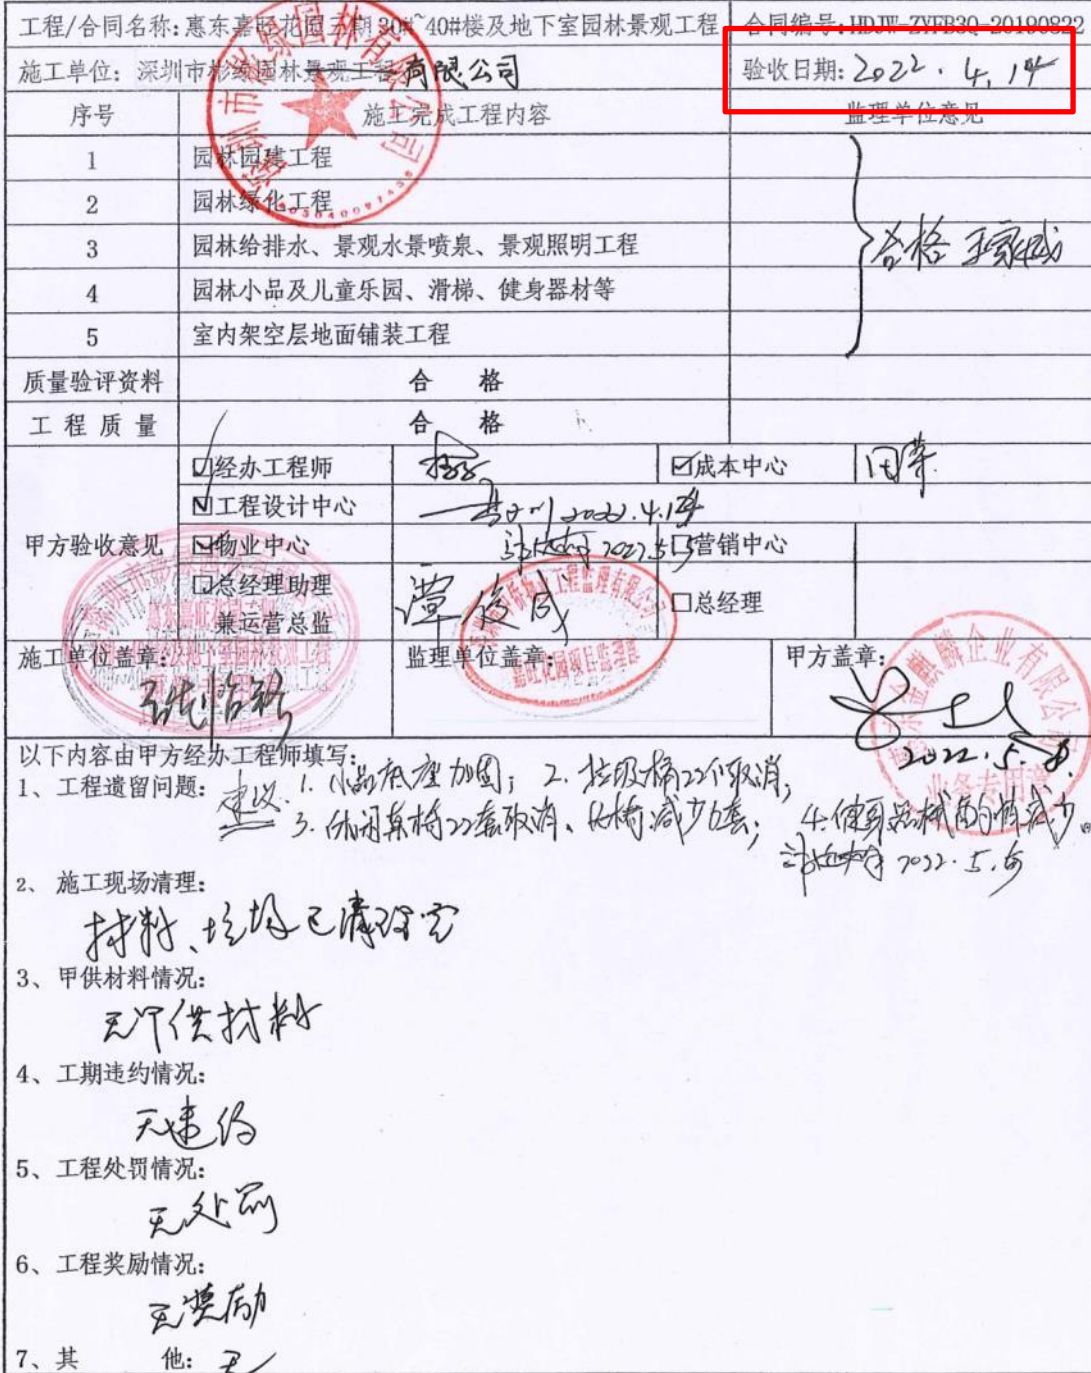 工程/合同名称：惠东嘉旺花园三期30#~40#楼及地下室园林景观工程 合同编号：HDJW-ZYFB3Q-20190822
施工单位：深圳市彬绿园林景观工程有限公司 验收日期：2022.4.14
序号 施工完成工程内容 监理单位意见
1 园林园建工程
2 园林绿化工程
3 园林给排水、景观水景喷泉、景观照明工程 合格
4 园林小品及儿童乐园、滑梯、健身器材等
5 室内架空层地面铺装工程
质量验评资料 合 格
工程质量 合 格
甲方验收意见
☑经办工程师 ☑成本中心
☑工程设计中心 2022.4.14
☑物业中心 2022.5.5 □营销中心
□总经理助理
兼运营总监 谭俊成 □总经理
施工单位盖章： 监理单位盖章： 甲方盖章：
嘉旺花园项目监理部
业务专用章
2022.5.8.
以下内容由甲方经办工程师填写：
1、工程遗留问题：建议：1. 小品底座加固；2. 垃圾桶22个取消；
3. 休闲桌椅22套取消、长椅减少6套； 4. 健身器械 减少。
2022.5.5
2、施工现场清理：
材料、垃圾已清理完
3、甲供材料情况：
无甲供材料
4、工期违约情况：
无违约
5、工程处罚情况：
无处罚
6、工程奖励情况：
无奖励
7、其 他：无